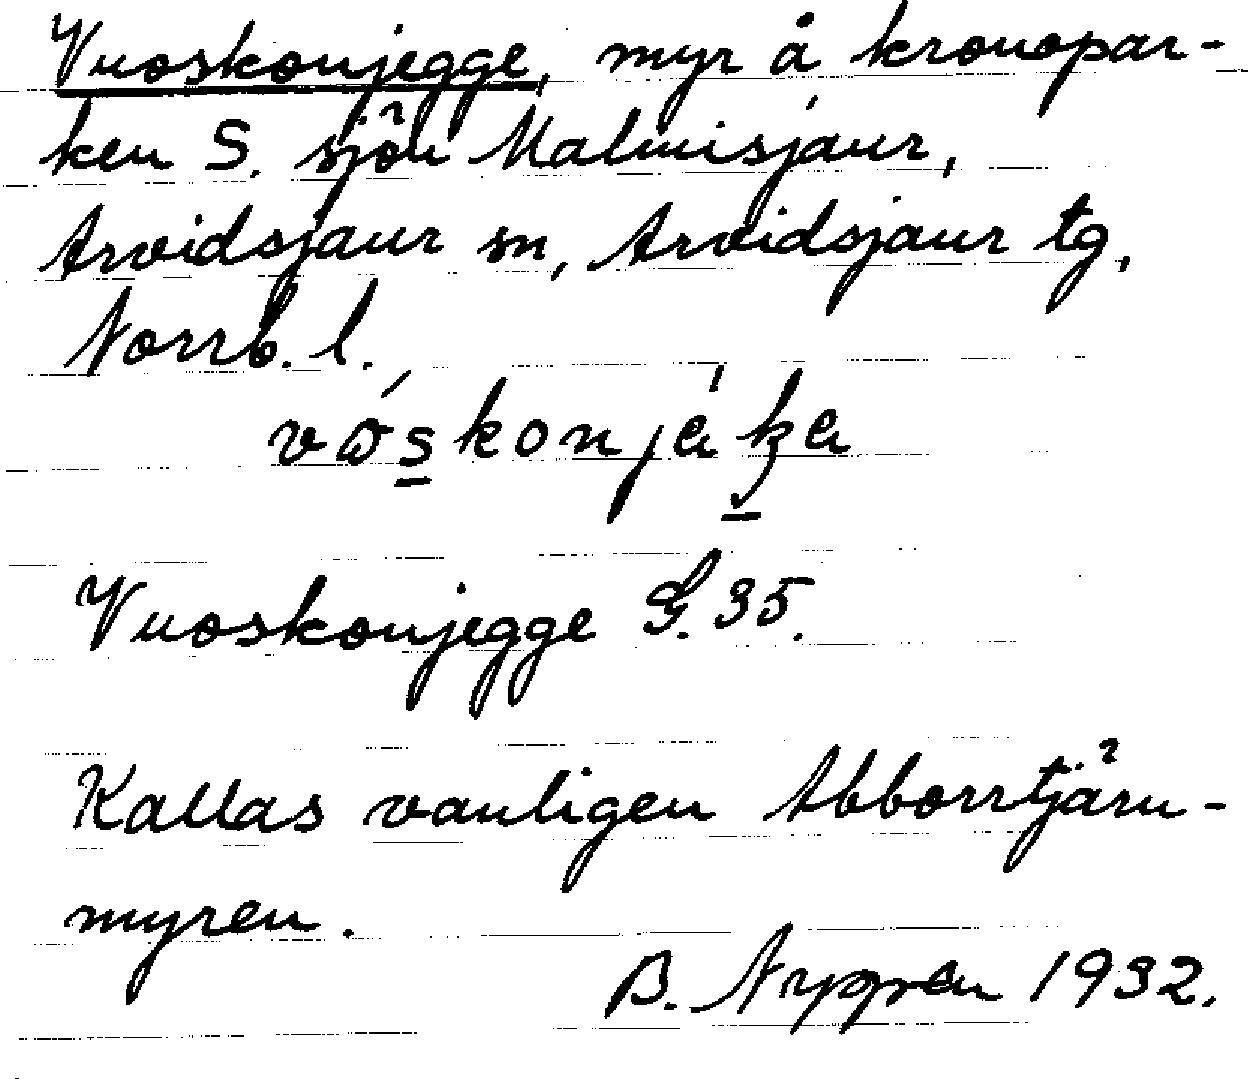 Vuoskonjegge, myr å kronopar-
ken S. sjön Malmisjaur,
Arvidsjaur sn, Arvidsjaur tg,
Norrb. l.
Vuoskonjegge G. 35.
Kallas vanligen Abborrtjärn-
myren.
B. Nygren 1932.